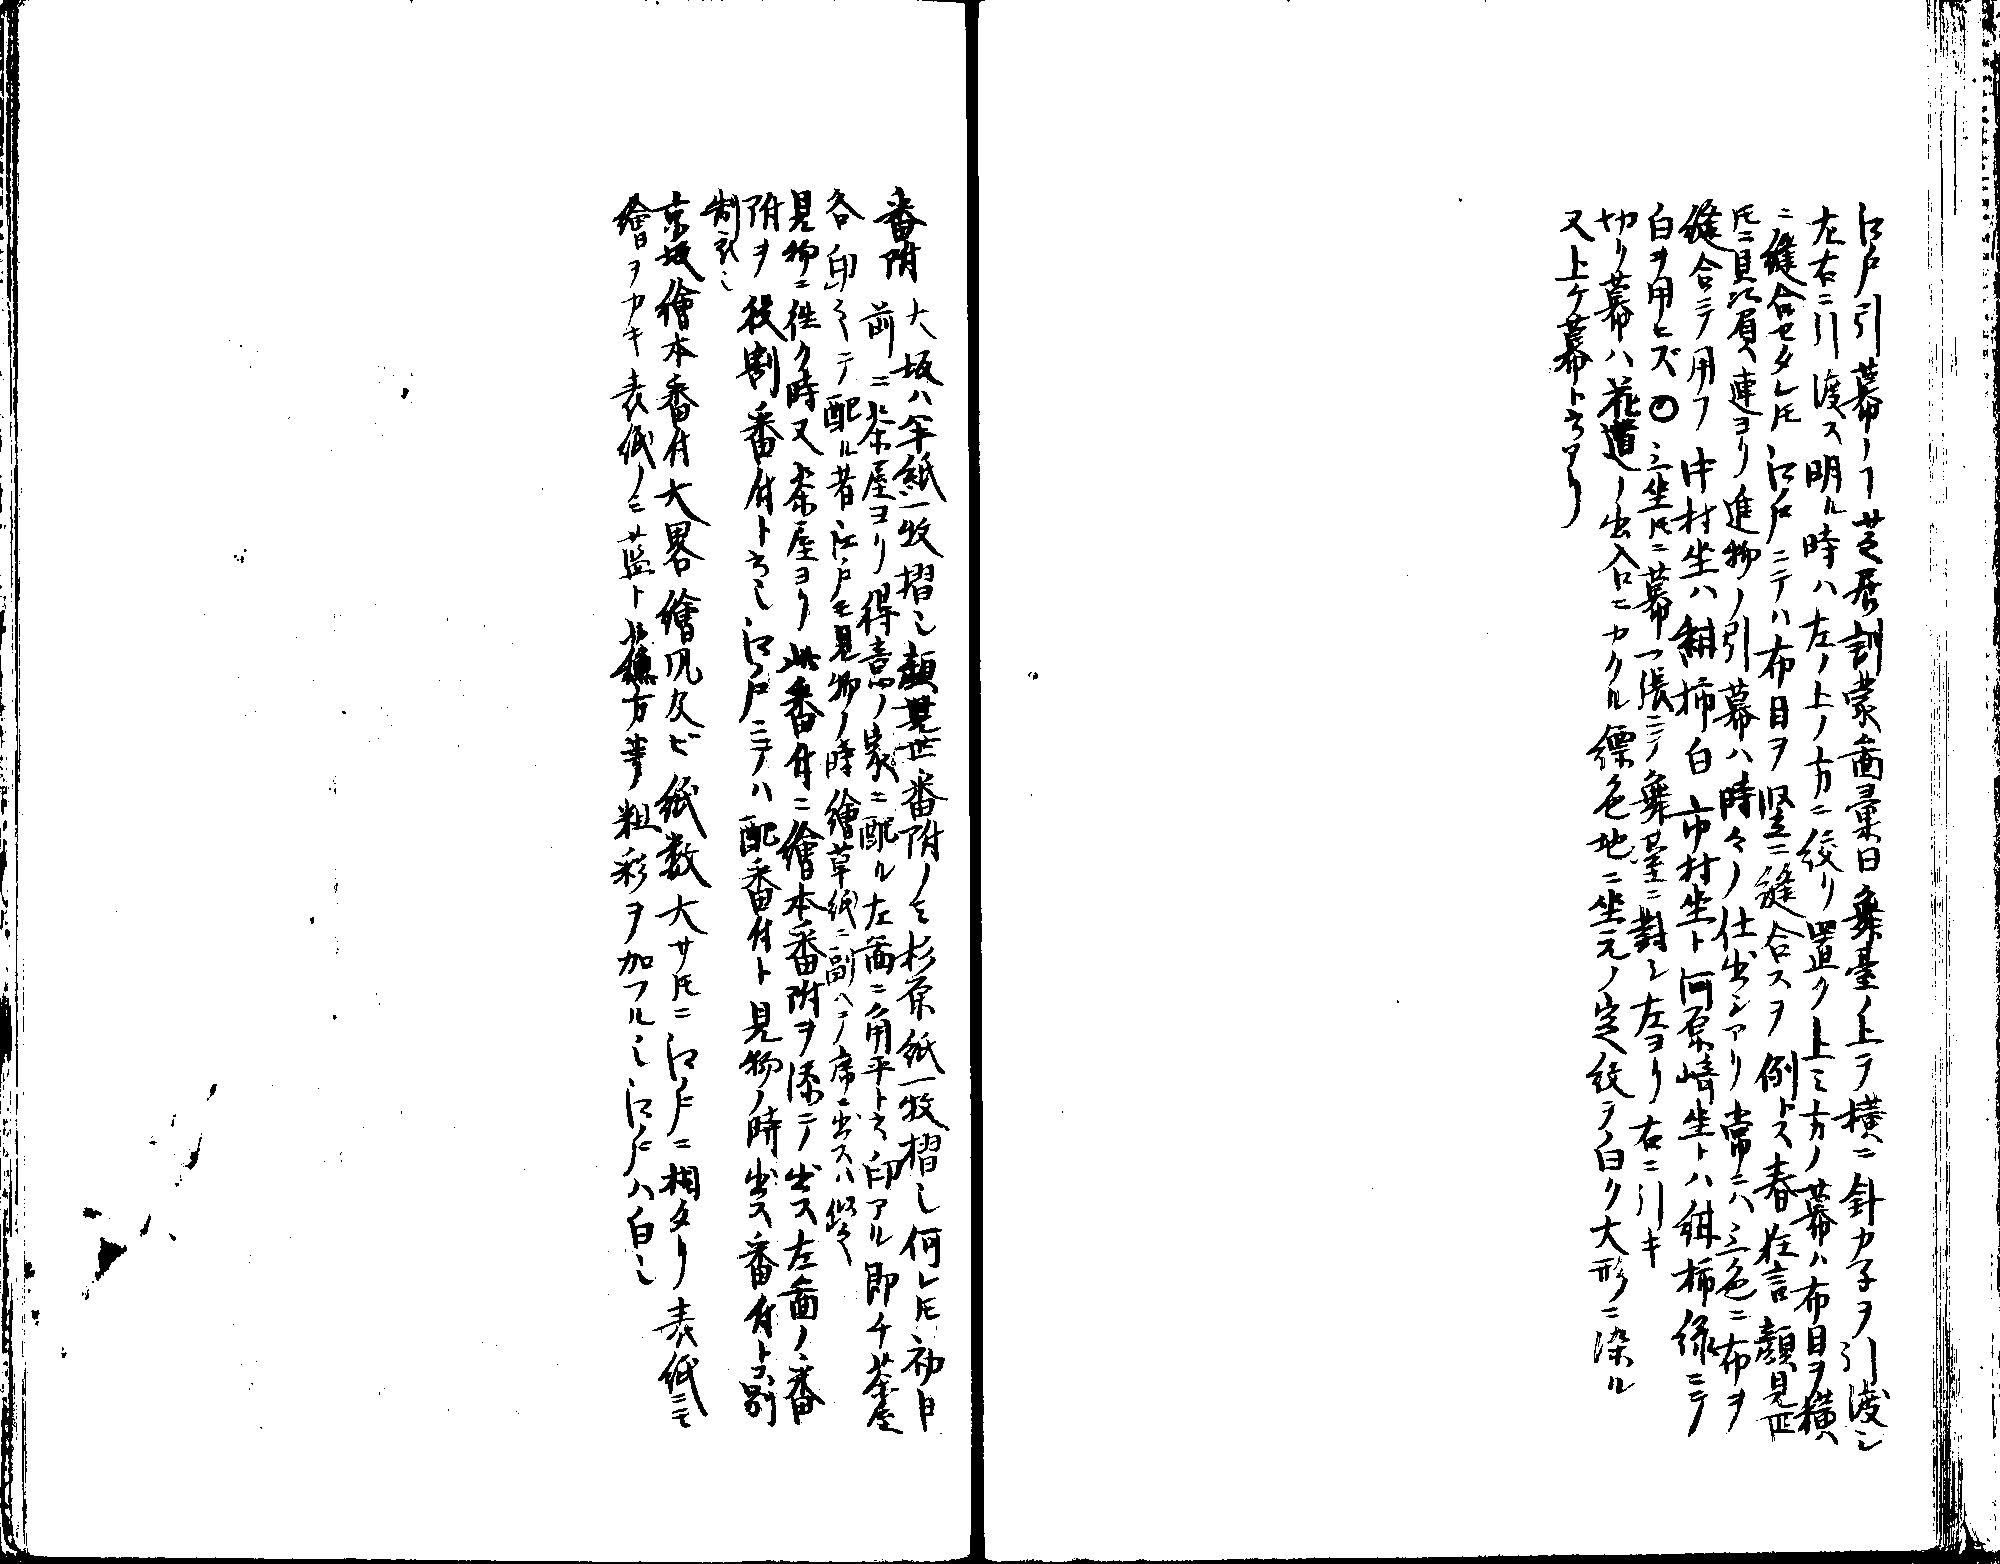 江戸引幕ノヿ芝居訓蒙圖彙曰舞臺ノ上ヲ横ニ針カ子ヲ引渡シ
左右ニ引渡ス明ル時ハ左ノ上ノ方ニ絞リ置ク上ミ方ノ幕ハ布目ヲ横
ニ縫合セタレ𪜈江戸ニテハ布目ヲ竪ニ縫合スヲ例トス春狂言顔見世
𪜈ニ贔屓連ヨリ進物ノ引幕ハ時々ノ仕出シアリ常ニハ三色ニ布ヲ
縫合ニテ用フ中村坐ハ紺柿白市村坐ト河原崎坐トハ紺柿緑ニテ
白ヲ用ヒズ〇三坐𪜈ニ幕一張ニテ舞臺ニ對シ左ヨリ右ニ引キ
切リ幕ハ花道ノ出入口ニカクル縹色地ニ坐元ノ定紋ヲ白ク大形ニ染ル
又上ケ幕ト云アリ
番附 大坂ハ半紙一枚摺シ顔見世番附ノミ杉原紙一枚摺シ何レ𪜈初日
前ニ茶屋ヨリ得意ノ家ニ配ル左圖ニ角平ト云印アル即チ茶屋
各印シテ配ル昔江戸モ見物ノ時繪草紙ニ副ヘテ席ニ出スハ
見物ニ徃ク時又茶屋ヨリ此番付ニ繪本番附ヲ添ニテ出ス左圖ノ番
附ヲ役割番付ト云シ江戸ニテハ配番付ト見物ノ時出ス番付トヲ別
制款シ
京坂繪本番付大畧繪凡及ビ紙数大サ𪜈ニ江戸ニ相タリ表紙ニモ
繪ヲカキ表紙ノミ藍ト方等粗彩ヲ加フルシ江戸ハ白シ